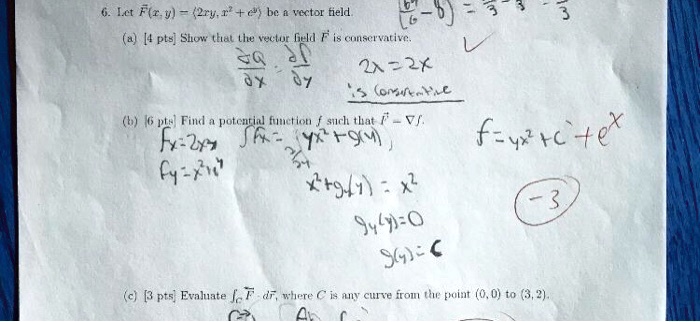 6. Let F⃗(x, y) = ⟨2xy, x² + eʸ⟩ be a vector field.
(a) [4 pts] Show that the vector field F⃗ is conservative.
∂Q/∂x = ∂P/∂y 2x = 2x
is conservative
(b) [6 pts] Find a potential function f such that F⃗ = ∇f.
fx = 2xy ∫fx = yx² + g(y), f = yx² + c + eˣ
x² + gy(y) = x²
-3
gy(y) = 0
g(y) = C
(c) [3 pts] Evaluate ∫_C F⃗ · dr⃗, where C is any curve from the point (0, 0) to (3, 2).